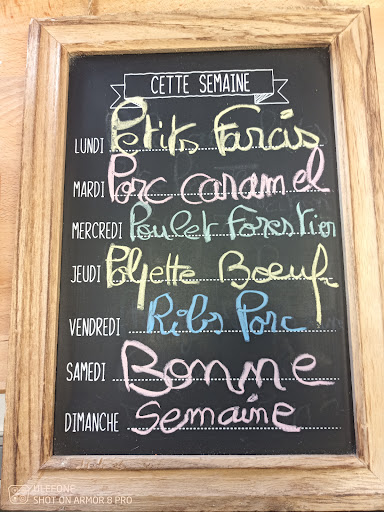 CETTE SEMAINE
LUNDI Petits Farcis
MARDI Porc caramel
MERCREDI Poulet Forestier
JEUDI Polyette Boeuf
VENDREDI Ribs Porc
SAMEDI Bonne
DIMANCHE Semaine
ULEFONE
SHOT ON ARMOR 8 PRO